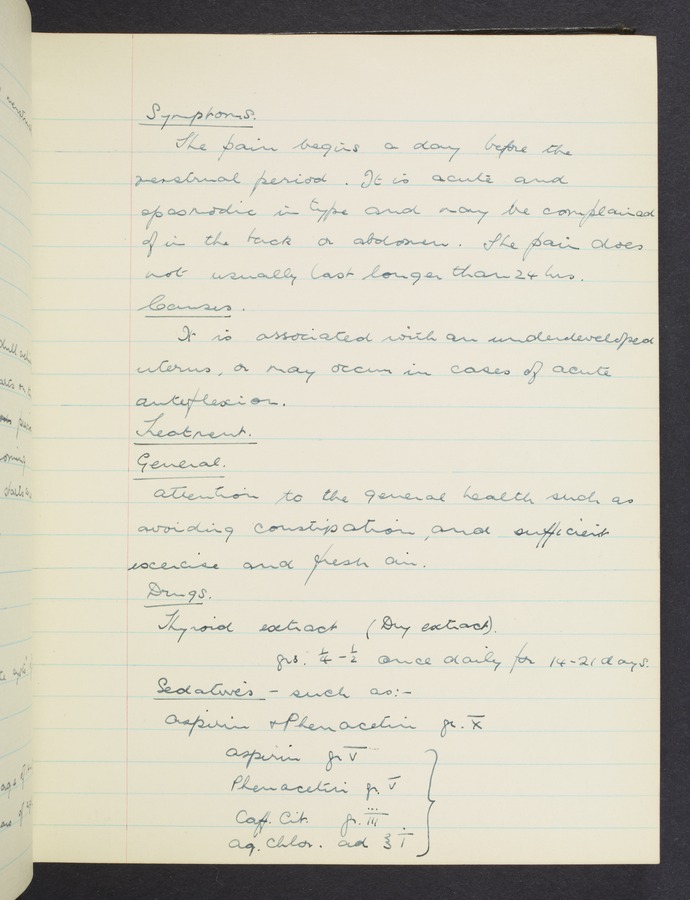 Symptoms.
The pain begins a day before the
menstrual period. It is acute and
spasmodic in type and may be complained
of in the back or abdomen. The pain does
not usually last longer than 24 hrs.
Causes.
It is associated with an underdeveloped
uterus, or may occur in cases of acute
anteflexion.
Treatment.
General.
Attention to the general health such as
avoiding constipation, and sufficient
excercise and fresh air.
Drugs.
Thyroid extract (Dry extract).
grs. ¼ - ½ once daily for 14-21 days.
Sedatives - such as:-
Aspirin + Phenacetin gr. X
Aspirin gr V
Phenacetin gr. V
Caff. Cit. gr. iii
aq. Chlor. ad ℥ i